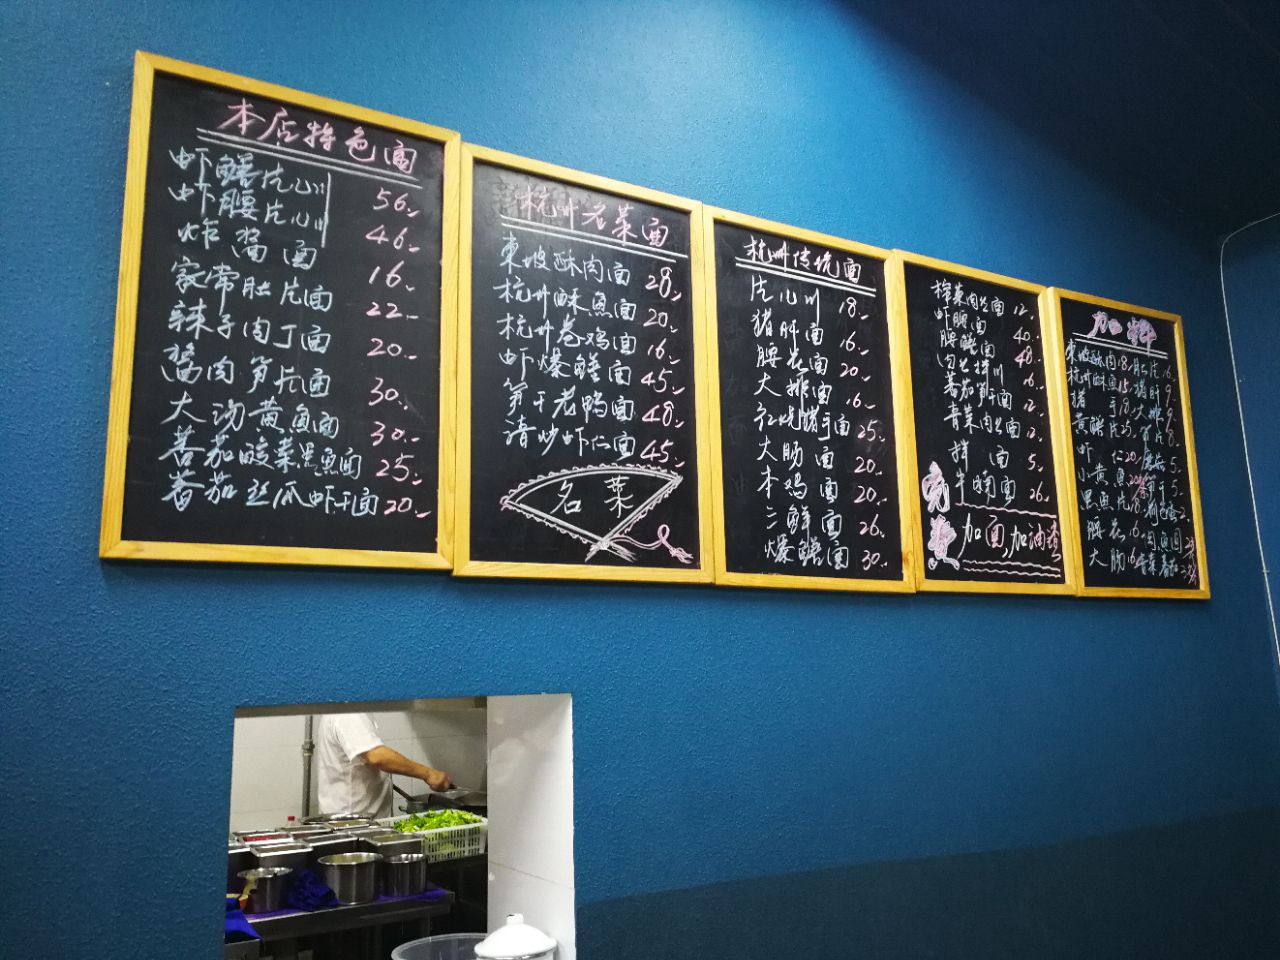 本店特色面
虾鳝片儿川 56.
虾腰片儿川 46.
炸酱面 16.
家常肚片面 22.
辣子肉丁面 20.
酱肉笋片面 30.
大汤黄鱼面 30.
蕃茄酸菜黑鱼面 25.
蕃茄丝瓜虾干面 20.
杭州名菜面
東坡酥肉面 28.
杭州酥鱼面 20.
杭州卷鸡面 16.
虾爆鳝面 45.
笋干老鸭面 48.
清炒虾仁面 45.
名菜
杭州传统面
片儿川 18.
猪肝面 16.
腰花面 20.
大排面 16.
红烧猪手面 25.
大肠面 20.
本鸡面 20.
三鲜面 26.
爆鳝面 30.
榨菜肉丝面 12.
虾腰面 40.
腰鳝面 48.
肉丝拌川
蕃茄笋干面 12.
青菜肉丝面 12.
拌面 5.
牛腩面 26.
免费
加面,加油渣
加料
東坡酥肉 18. 肚片 16.
杭州酥鱼 15. 猪肝 9.
猪手 18. 大排 9.
黄鳝片 25. 笋片 8.
虾仁 20. 蘑菇 5.
小黄鱼 笋干 5.
黑鱼片 18.
腰花 16.
大肠 16. 青菜蕃茄